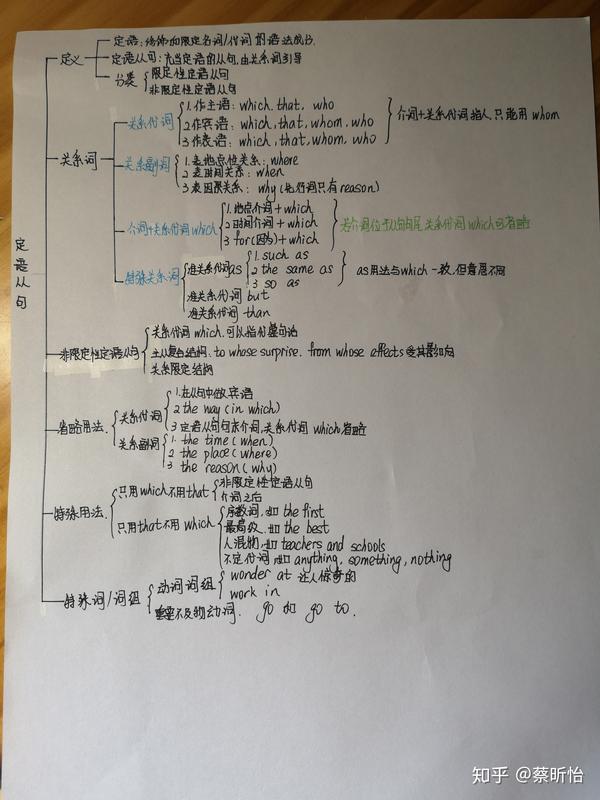 定语从句
定义
定语:修饰和限定名词/代词的语法成分.
定语从句:充当定语的从句,由关系词引导
分类
限定性定语从句
非限定性定语从句
关系词
关系代词
1.作主语: which. that, who
2.作宾语: which, that, whom, who
3.作表语: which, that, whom, who
介词+关系代词指人,只能用 whom
关系副词
1.表地点性关系: where
2.表时间关系: when
3.表因果关系: why (先行词只有reason)
介词+关系代词which
1.地点介词+which
2.时间介词+which
3.for(因为)+which
若介词位于从句句尾,关系代词which可省略
特殊关系词
准关系代词as
1. such as
2 the same as
3 so as
as用法与which一致,但意思不同
准关系代词 but
准关系代词 than
非限定性定语从句
关系代词 which.可以指代整句话
主从复合结构. to whose surprise. from whose affects 受其影响
关系限定结构
省略用法.
关系代词
1.在从句中做宾语
2 the way (in which)
3 定语从句句末介词,关系代词 which省略
关系副词
1. the time (when)
2 the place (where)
3 the reason (why)
特殊用法.
只用which不用that
非限定性定语从句
介词之后
只用that不用 which
序数词,如 the first
最高级. 如 the best
人混物,如 teachers and schools
不定代词,如 anything, something, nothing
特殊词/词组
动词词组
wonder at 让人惊奇的
work in
不及物动词. go 如 go to.
知乎 @蔡昕怡